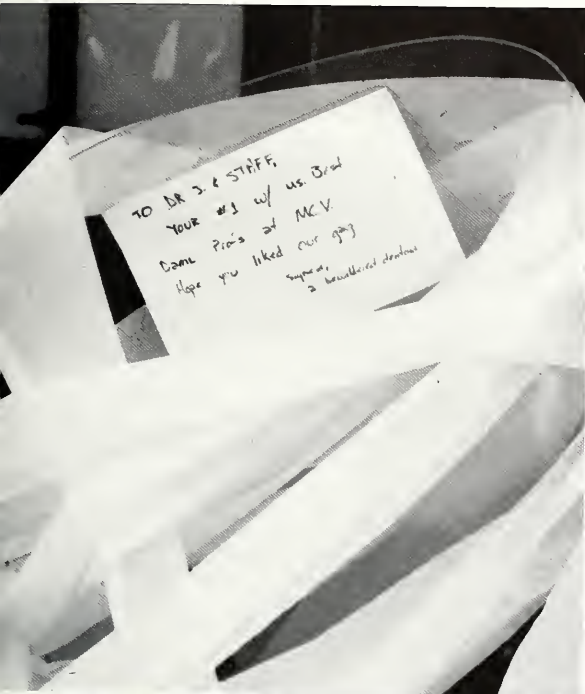 TO DR J. & STAFF,
YOUR #1 w/ us. Best
Damn Pro's at MCV.
Hope you liked our gag
Signed,
a bewildered